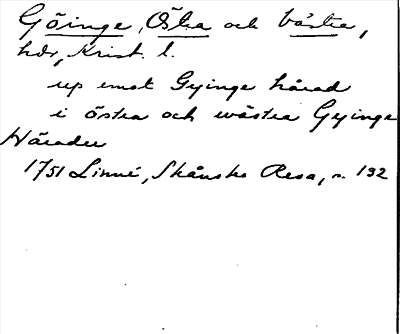 Göinge, Östra och Västra,
hdr, Krist. l.
up emot Gyinge härad
i östra och wästra Gyinge
Härader
1751 Linné, Skånska Resa, s. 132